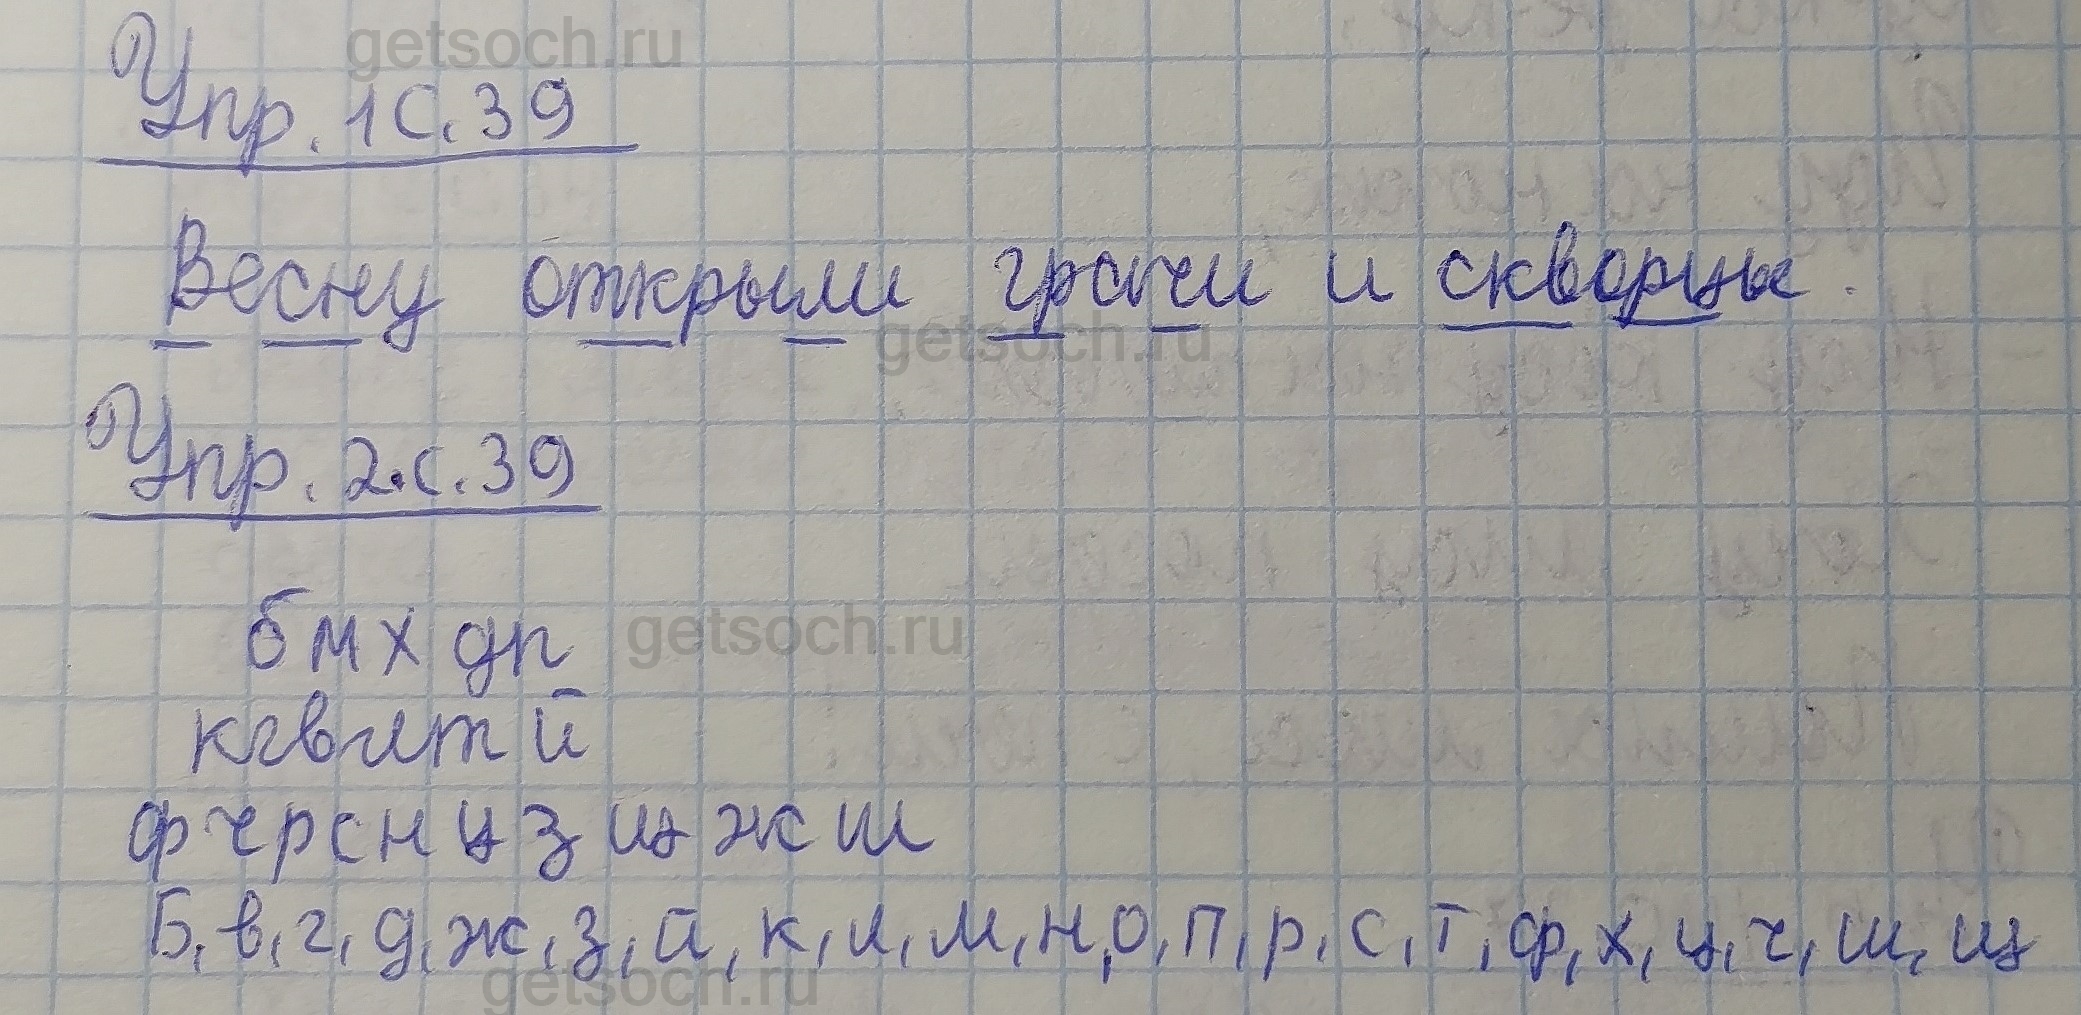 getsoch.ru
Упр. 1 С. 39
Весну открыли грачи и скворцы.
getsoch.ru
Упр. 2. с. 39
б м х д п
getsoch.ru
к г в л т й
ф ч р с н ц з щ ж ш
Б, в, г, д, ж, з, й, к, л, м, н, о, п, р, с, т, ф, х, ц, ч, ш, щ
getsoch.ru